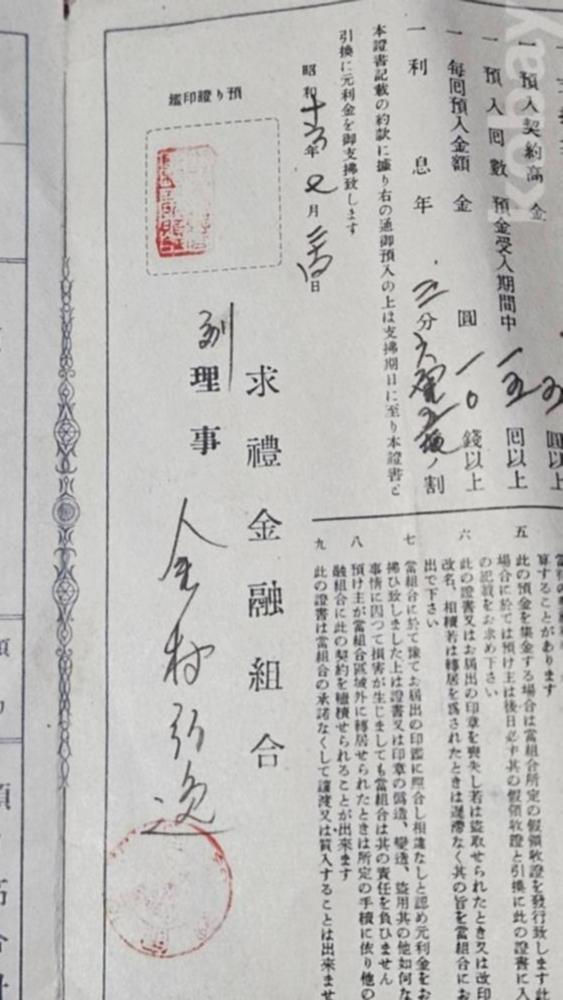 預入契約高 金 圓以上
一 預入回數 預金受入期間中 回以上
一 每回預入金額 金 圓 一〇 錢以上
一 利息 年 三分 ノ割
本證書記載の約款に據り右の通御預入の上は支拂期日に至り本證書と
引換に元利金を御支拂致します
昭和十六年七月 日
預り證印鑑
求禮金融組合
副理事 金村
算することがあります
五 此の預金を集金する場合は當組合所定の假領收證を發行致します此
場合に於ては預け主は後日必ず其の假領收證と引換に此の證書に入
の記載をお求め下さい
六 此の證書又はお届出の印章を喪失し若は盜取せられたとき又は改印
改名、相續若は轉居を爲されたときは遲滯なく其の旨を當組合にお
出で下さい
七 當組合に於て豫てお届出の印鑑に照合し相違なしと認め元利金をお
拂ひ致しました上は證書又は印章の僞造、變造、盜用其の他如何な
事情に因つて損害が生じましても當組合は其の責任を負ひません
八 預け主が當組合區域外に轉居せられたときは所定の手續に依り他の
融組合に此の契約を繼續せられることが出來ます
九 此の證書は當組合の承諾なくして讓渡又は質入することは出來ませ
kobay